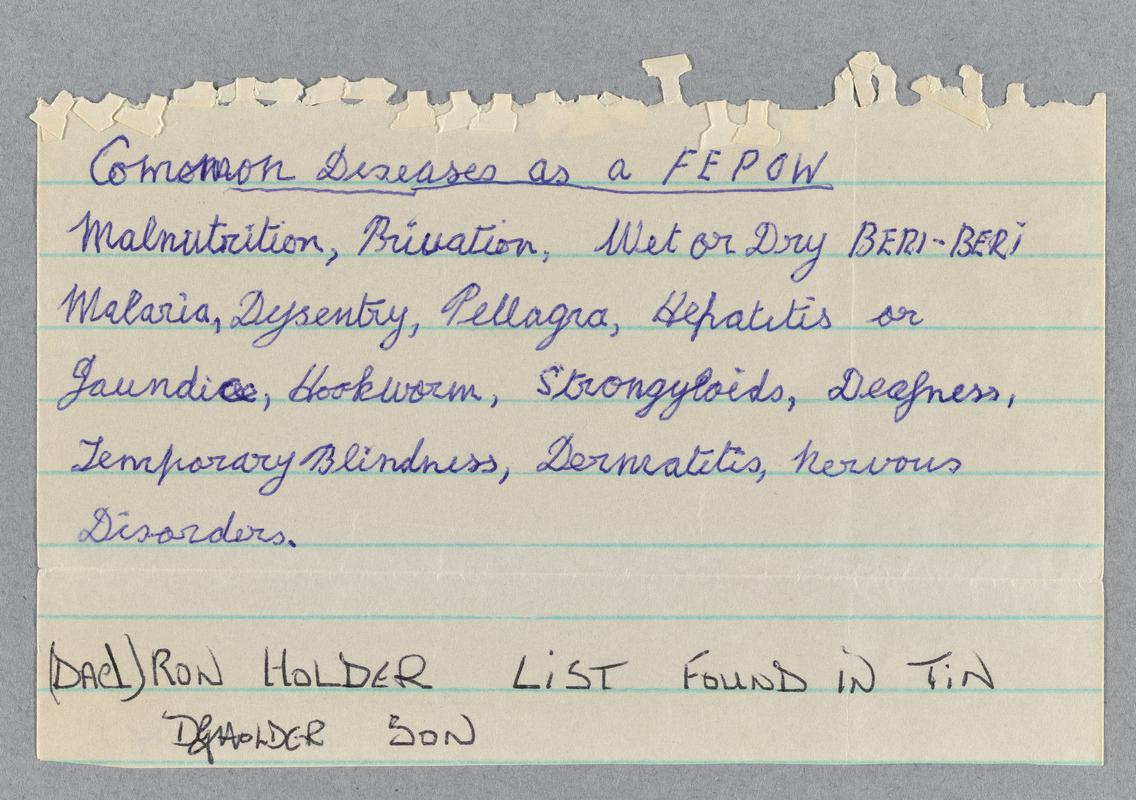 Common Diseases as a FEPOW
Malnutrition, Privation, Wet or Dry BERI-BERI
Malaria, Dysentry, Pellagra, Hepatitis or
Jaundice, Hookworm, Strongyloids, Deafness,
Temporary Blindness, Dermatitis, Nervous
Disorders.
(DAd) RON HOLDER LIST FOUND IN TIN
HOLDER SON